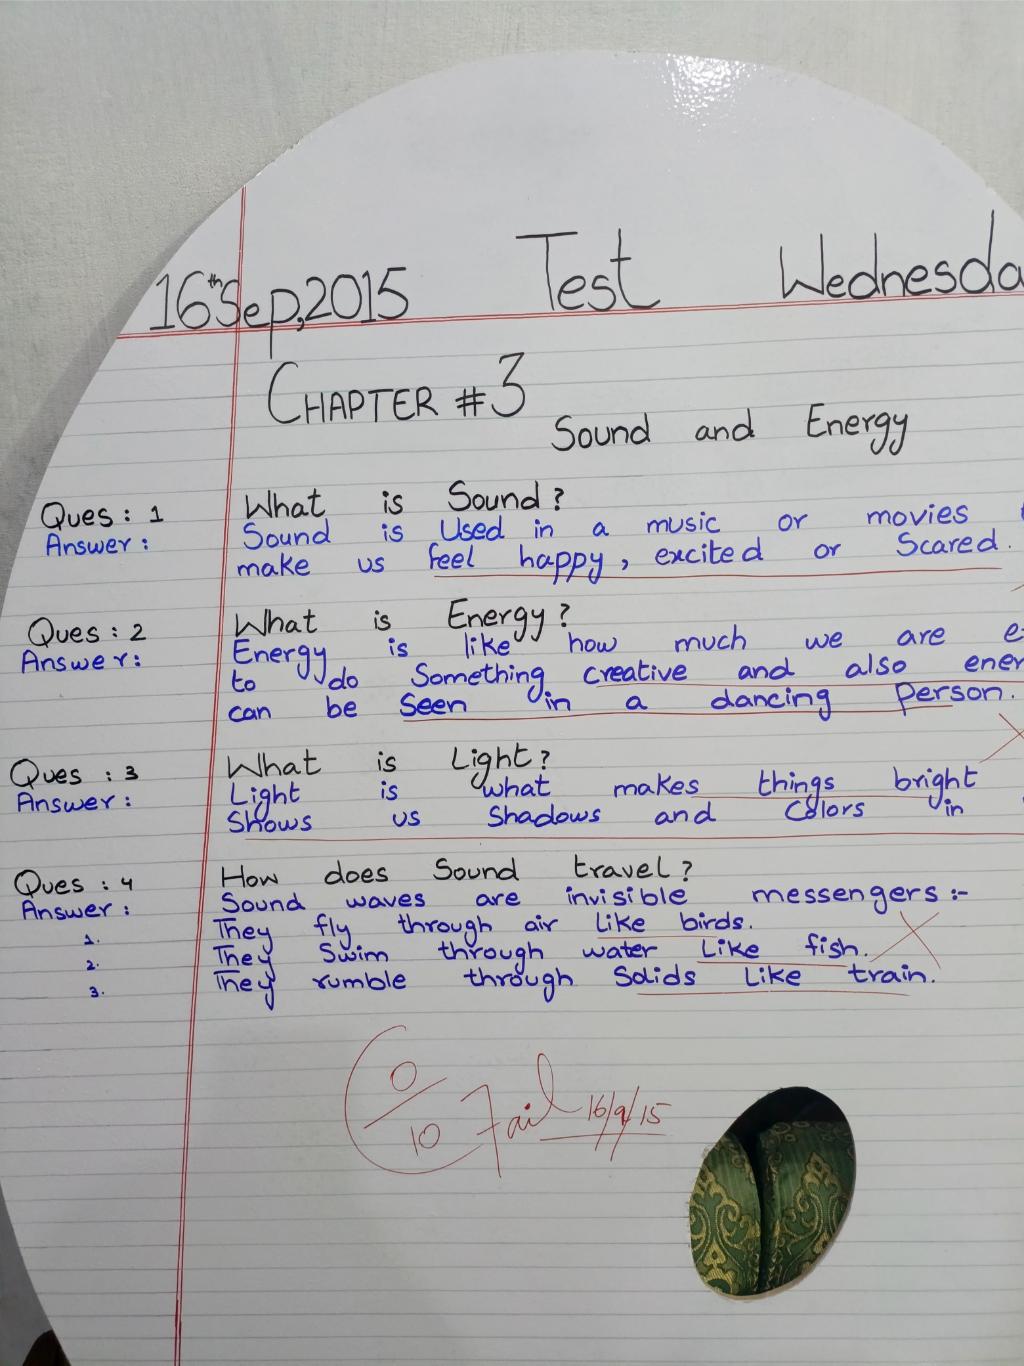 16th Sep,2015 Test Wednesda
CHAPTER #3
Sound and Energy
Ques: 1 What is Sound?
Answer: Sound is Used in a music or movies
make us feel happy, excited or Scared.
Ques: 2 What is Energy?
Answer: Energy is like how much we are
to do Something creative and also ener
can be Seen in a dancing Person.
Ques: 3 What is Light?
Answer: Light is what makes things bright
Shows us Shadows and Colors in
Ques: 4 How does Sound travel?
Answer: Sound waves are invisible messengers:-
1. They fly through air Like birds.
2. They Swim through water Like fish.
3. They rumble through Solids Like train.
0/10 Fail 16/9/15